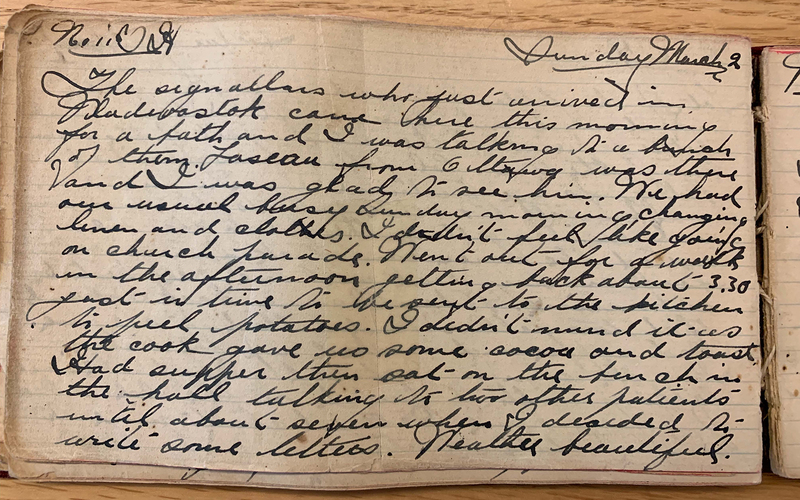 Sunday March 2
The signallers who just arrived in
Vladivostok came here this morning
for a bath and I was talking to a bunch
of them. Laseau from Ottawa was there
and I was glad to see him. We had
our usual busy Sunday morning changing
linen and clothes. I didn't feel like going
on church parade. Went out for a walk
in the afternoon getting back about 3.30
just in time to be sent to the kitchen
to peel potatoes. I didn't mind it as
the cook gave us some cocoa and toast.
Had supper then sat on the bench in
the hall talking to two other patients
until about seven when I decided to
write some letters. Weather beautiful.